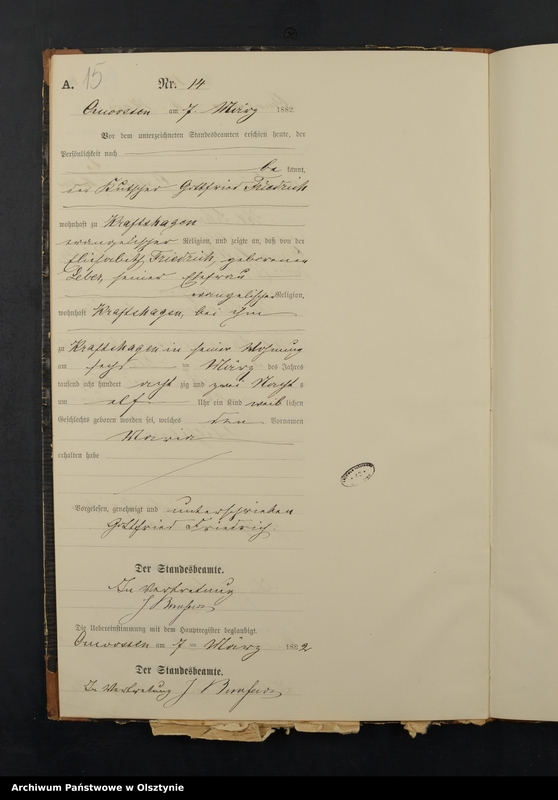 A. 15 Nr. 14
am 7 März 1882
Vor dem unterzeichneten Standesbeamten erschien heute, der
Persönlichkeit nach
be kannt,
der Kutscher Gottfried Friedrich
wohnhaft zu Kraftshagen
evangelischer Religion, und zeigte an, daß von der
Elisabeth Friedrich, geborenen
seiner Ehefrau
evangelischer Religion,
wohnhaft Kraftshagen, bei ihm
zu Kraftshagen in seiner Wohnung
am sechs ten März des Jahres
tausend acht hundert acht zig und zwei Nacht s
um elf Uhr ein Kind weib lichen
Geschlechts geboren worden sei, welches den Vornamen
Maria
erhalten habe
Vorgelesen, genehmigt und unterschrieben
Gottfried Friedrich.
Der Standesbeamte.
In Vertretung
J
Die Uebereinstimmung mit dem Hauptregister beglaubigt.
am 7 ten März 1882
Der Standesbeamte.
In Vertretung J
Archiwum Państwowe w Olsztynie